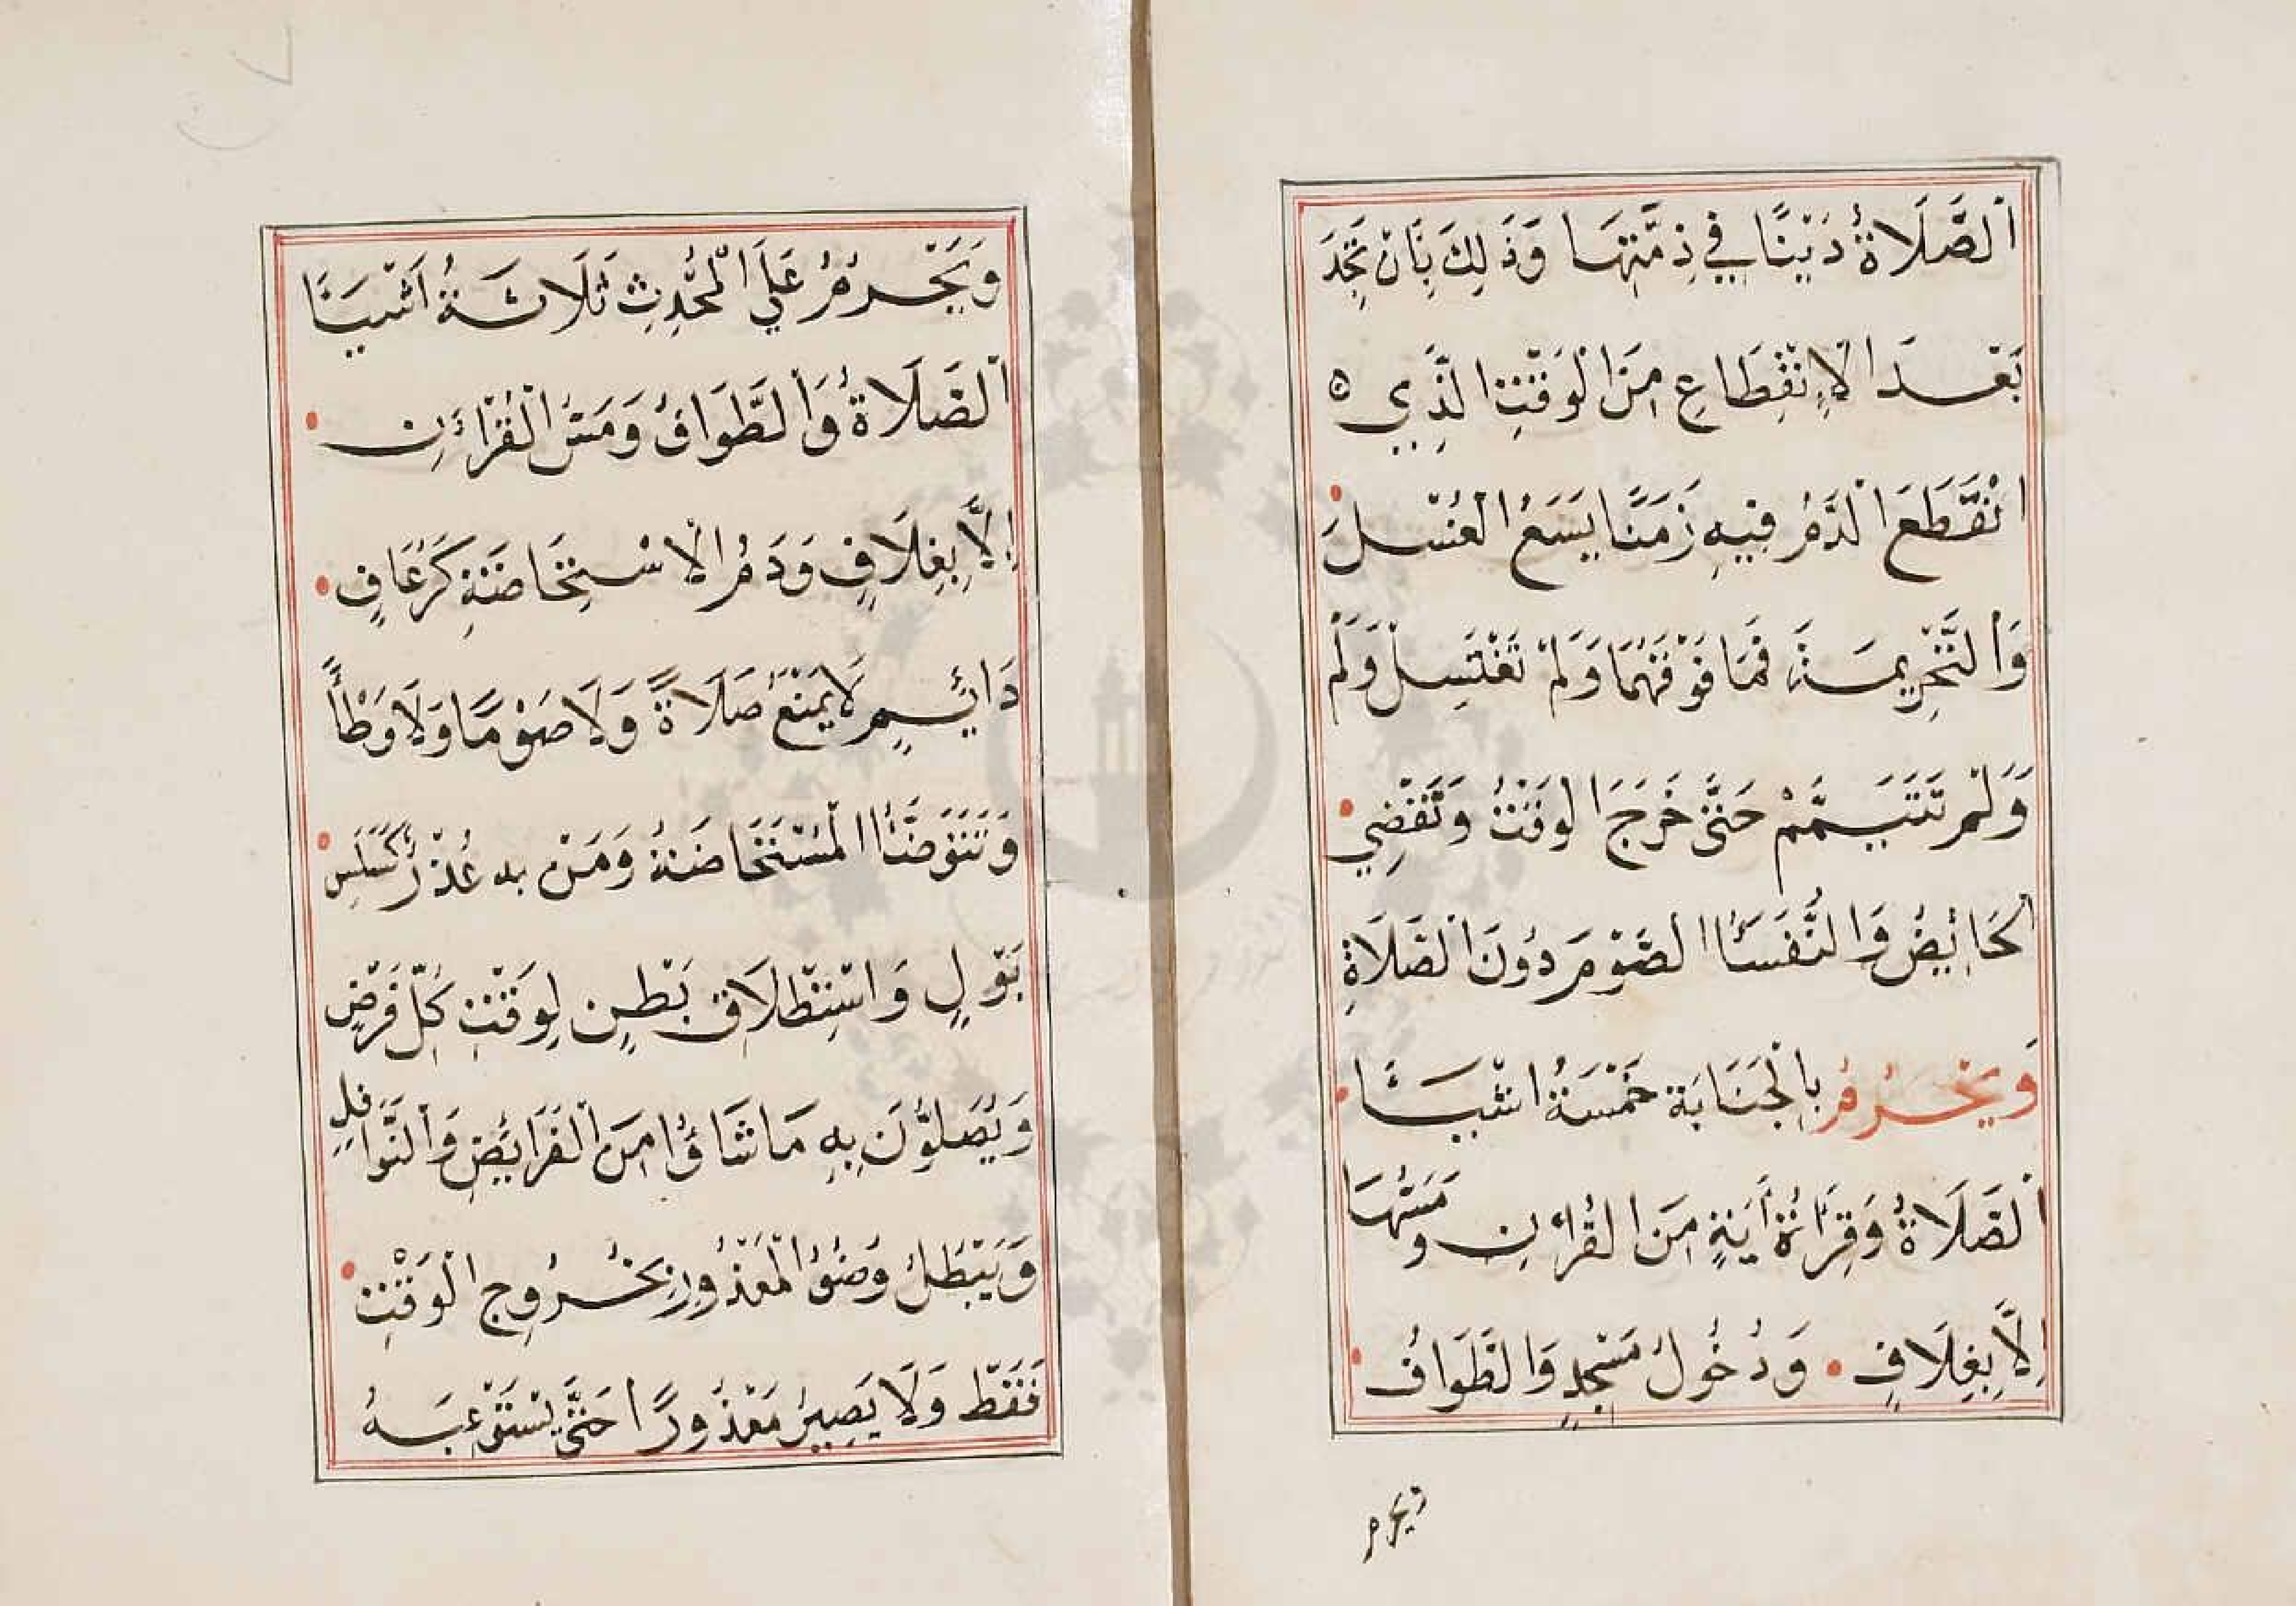 اَلصَّلَاةُ دَيْنًا فِي ذِمَّتِهَا وَذَلِكَ بِأَنْ تَجِدَ
بَعْدَ الْاِنْقِطَاعِ مِنَ الْوَقْتِ الَّذِي ه
انْقَطَعَ الدَّمُ فِيهِ زَمَنًا يَسَعُ الْغُسْلَ
وَالتَّحْرِيمَةَ فَمَا فَوْقَهُمَا وَلَمْ تَغْتَسِلْ وَلَمْ
وَلَمْ تَتَيَمَّمْ حَتَّى خَرَجَ الْوَقْتُ وَتَقْضِي
الْحَائِضُ وَالنُّفَسَاُ الصَّوْمَ دُونَ الصَّلَاةِ
وَيَحْرُمُ بِالْجَنَابَةِ خَمْسَةُ اشْيَأً
اَلصَّلَاةُ وَقِرَأَةُ أَيَةٍ مِنَ الْقُرْأٰنِ وَمَسُّهَا
اِلَّا بِغِلَافٍ • وَدُخُولُ مَسْجِدٍ وَالطَّوَافُ
ويحرم
وَيَحْرُمُ عَلَى الْمُحْدِثِ ثَلَاثَةُ اَشْيَأً
اَلصَّلَاةُ وَالطَّوَافُ وَمَسُّ الْقُرْأٰنِ
اِلَّا بِغِلَافٍ وَدَمُ الْاِسْتِحَاضَةِ كَرُعَافٍ
دَائِمٍ لَا يَمْنَعُ صَلَاةً وَلَا صَوْمًا وَلَا وَطْأً
وَتَتَوَضَّأُ الْمُسْتَحَاضَةُ وَمَنْ بِهِ عُذْرٌ كَسَلَسِ
بَوْلٍ وَاسْتِطْلَاقِ بَطْنٍ لِوَقْتِ كُلِّ فَرْضٍ
وَيُصَلُّونَ بِهِ مَا شَاؤُا مِنَ الْفَرَائِضِ وَالنَّوَافِلِ
وَيَبْطُلُ وُضُوُ الْمَعْذُورِ بِخُرُوجِ الْوَقْتِ
فَقَطْ وَلَا يَصِيرُ مَعْذُورًا حَتَّى يَسْتَوْعِبَهُ